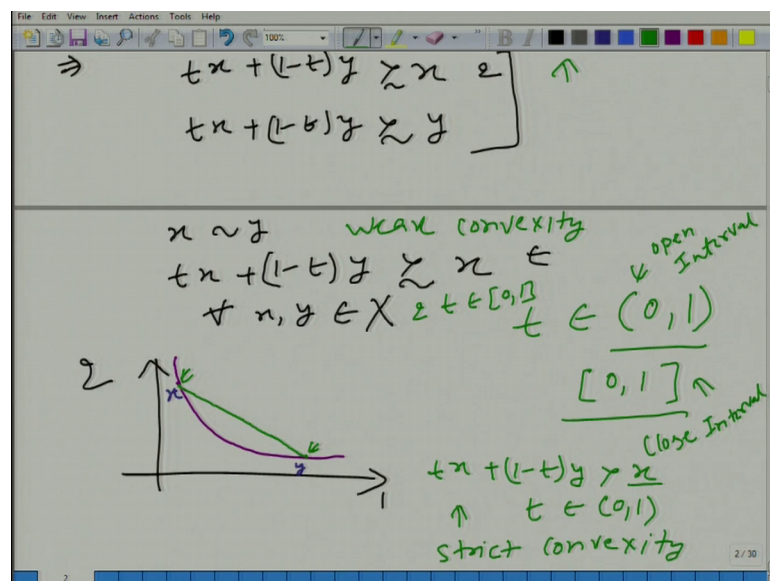 File Edit View Insert Journal Actions Tools Help
100%
⇒ tx + (1-t)y ≿ x &
↑
tx + (1-t)y ≿ y
x ~ y weak convexity
tx + (1-t)y ≿ x t
∀ x, y ∈ X & t ∈ [0,1]
open Interval
t ∈ (0,1)
[0,1]
Close Interval
2
x
y
1
tx + (1-t)y > x
↑ t ∈ (0,1)
strict convexity
2 / 30
2